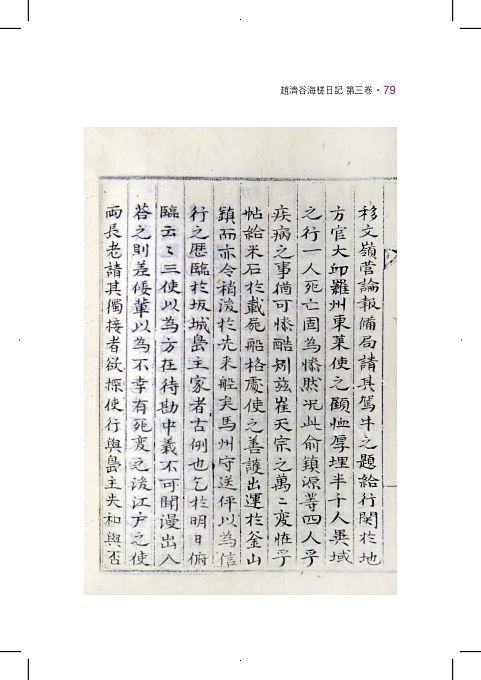 趙濟谷海槎日記 第三卷 · 79
移文嶺營論報備局請其駕牛之題給行関於地
方官大邱羅州東萊使之顧恤厚埋半千人異域
之行一人死亡固為慘然况此俞鎮源等四人乎
疾病之事猶可慘酷矧玆崔天宗之萬〻変恠乎
帖給米石於載屍船格處使之善護出運於釜山
鎮而亦令稍後於先来船矣馬州守送伻以為信
行之歷臨於坂城島主家者古例也乞於明日俯
臨云〻三使以為方在待勘中義不可聞漫出入
答之則差倭輩以為不幸有死変之後江戶之使
両長老請其獨接者欲探使行與島主失和與否